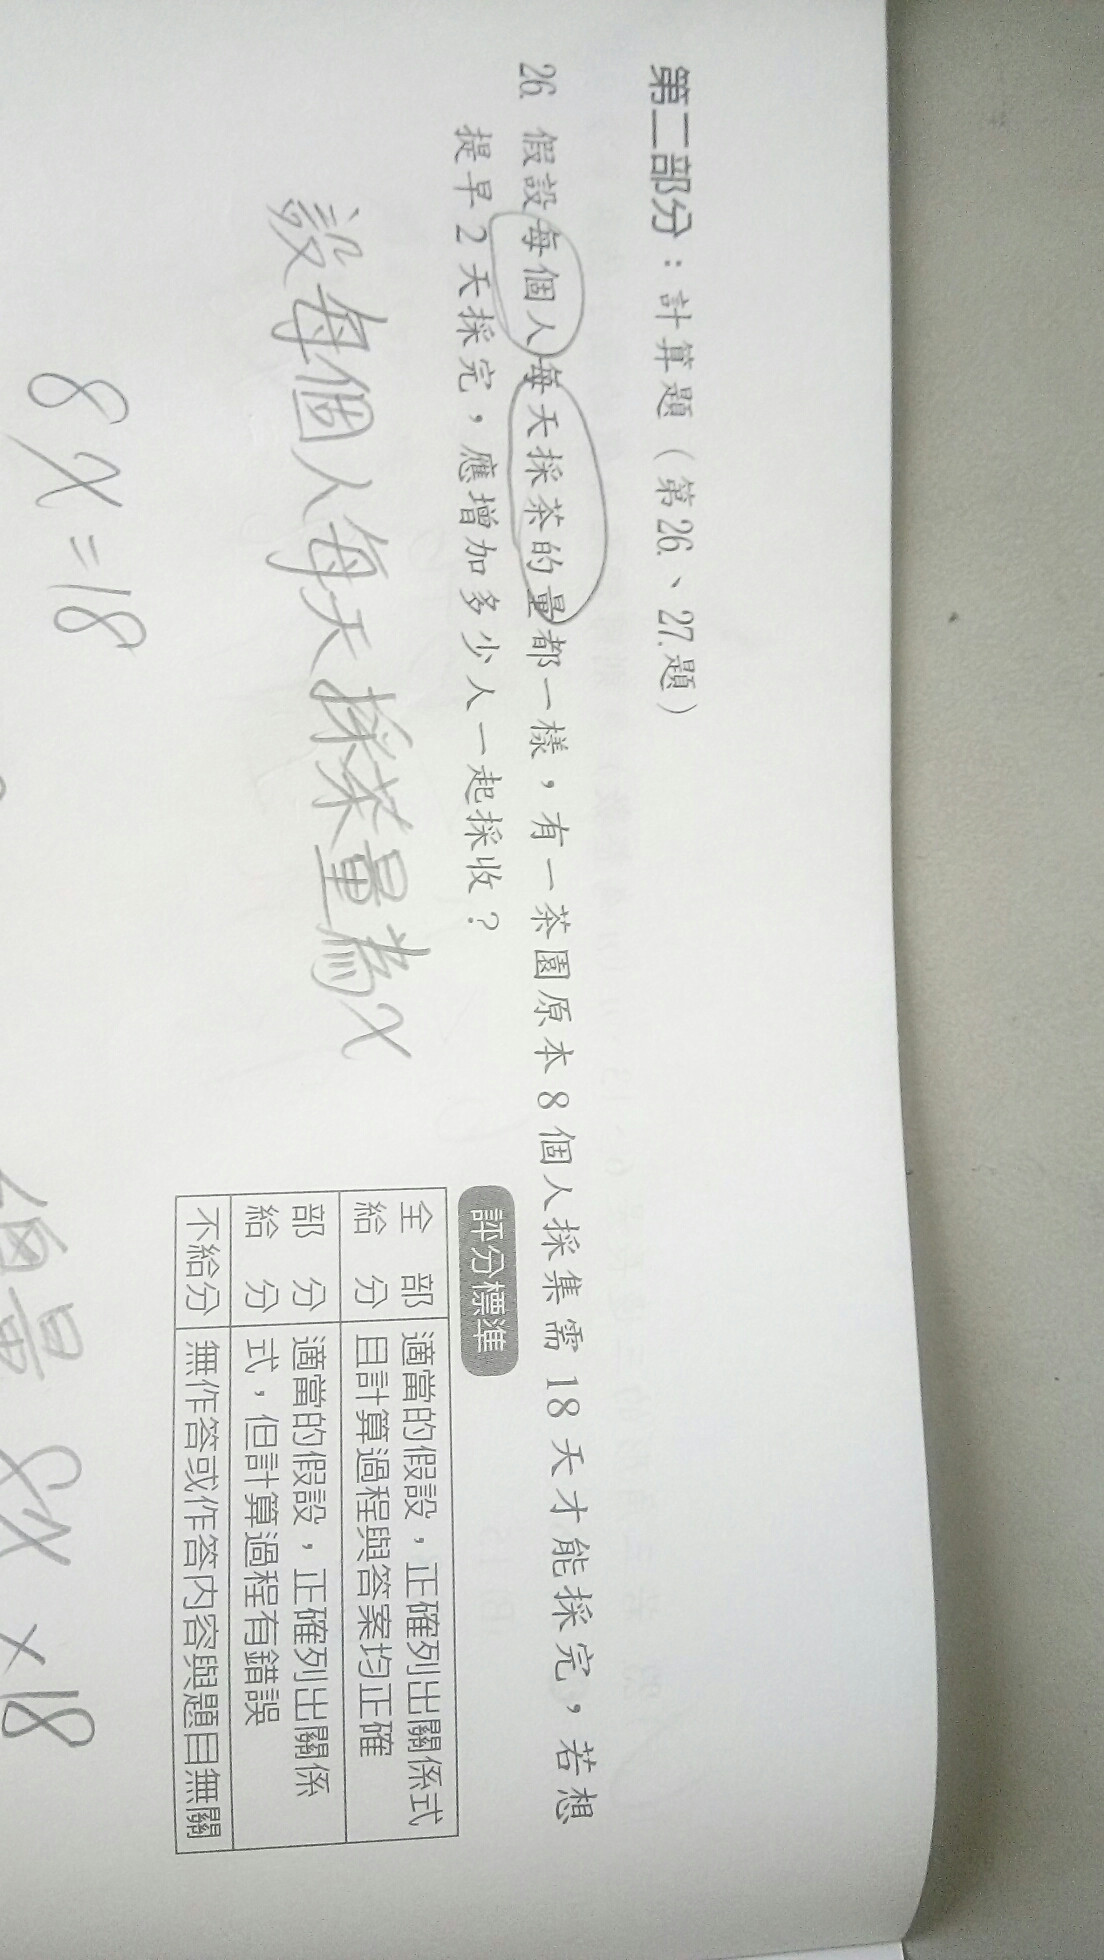 第二部分：計算題（第26.、27.題）
26. 假設每個人每天採茶的量都一樣，有一茶園原本8個人採集需18天才能採完，若想
提早2天採完，應增加多少人一起採收？
設每個人每天採茶量為x
8x=18
評分標準
全部給分 適當的假設，正確列出關係式
且計算過程與答案均正確
部分給分 適當的假設，正確列出關係
式，但計算過程有錯誤
不給分 無作答或作答內容與題目無關
量 8x×18